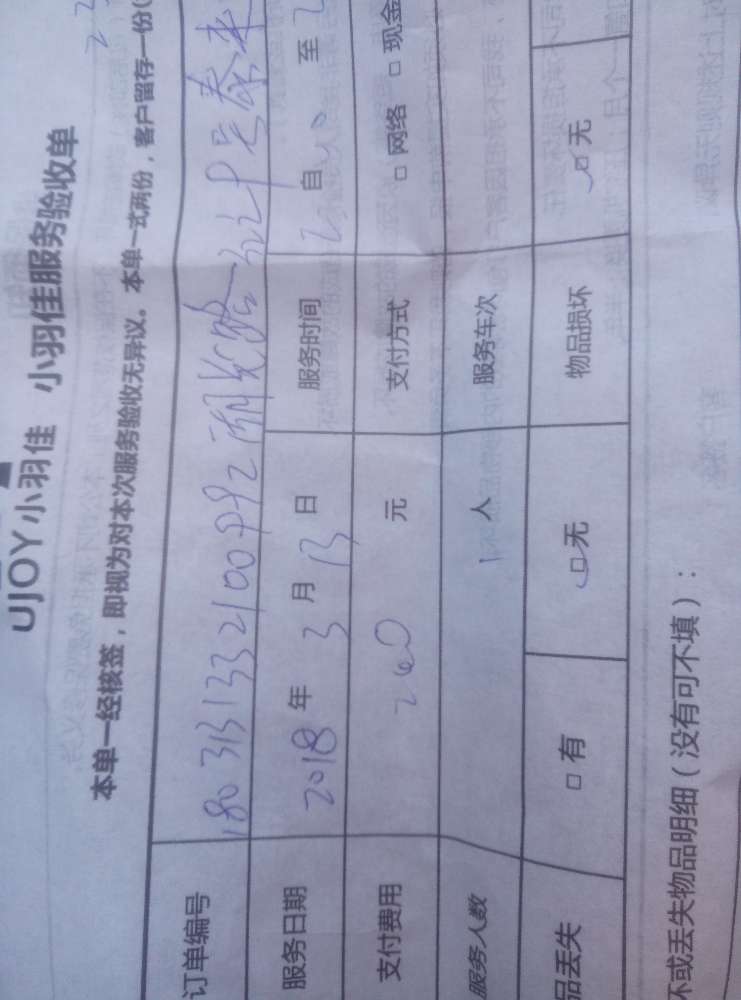 UJOY小羽佳 小羽佳服务验收单
本单一经核签，即视为对本次服务验收无异议。本单一式两份，客户留存一份（
订单编号 18031313321009992
服务日期 2018 年 3 月 13 日 服务时间 自 至 2
支付费用 260 元 支付方式 □ 网络 □ 现金
服务人数 1 人 服务车次
品丢失 □ 有 □ 无 物品损坏 □ 无
坏或丢失物品明细（没有可不填）：